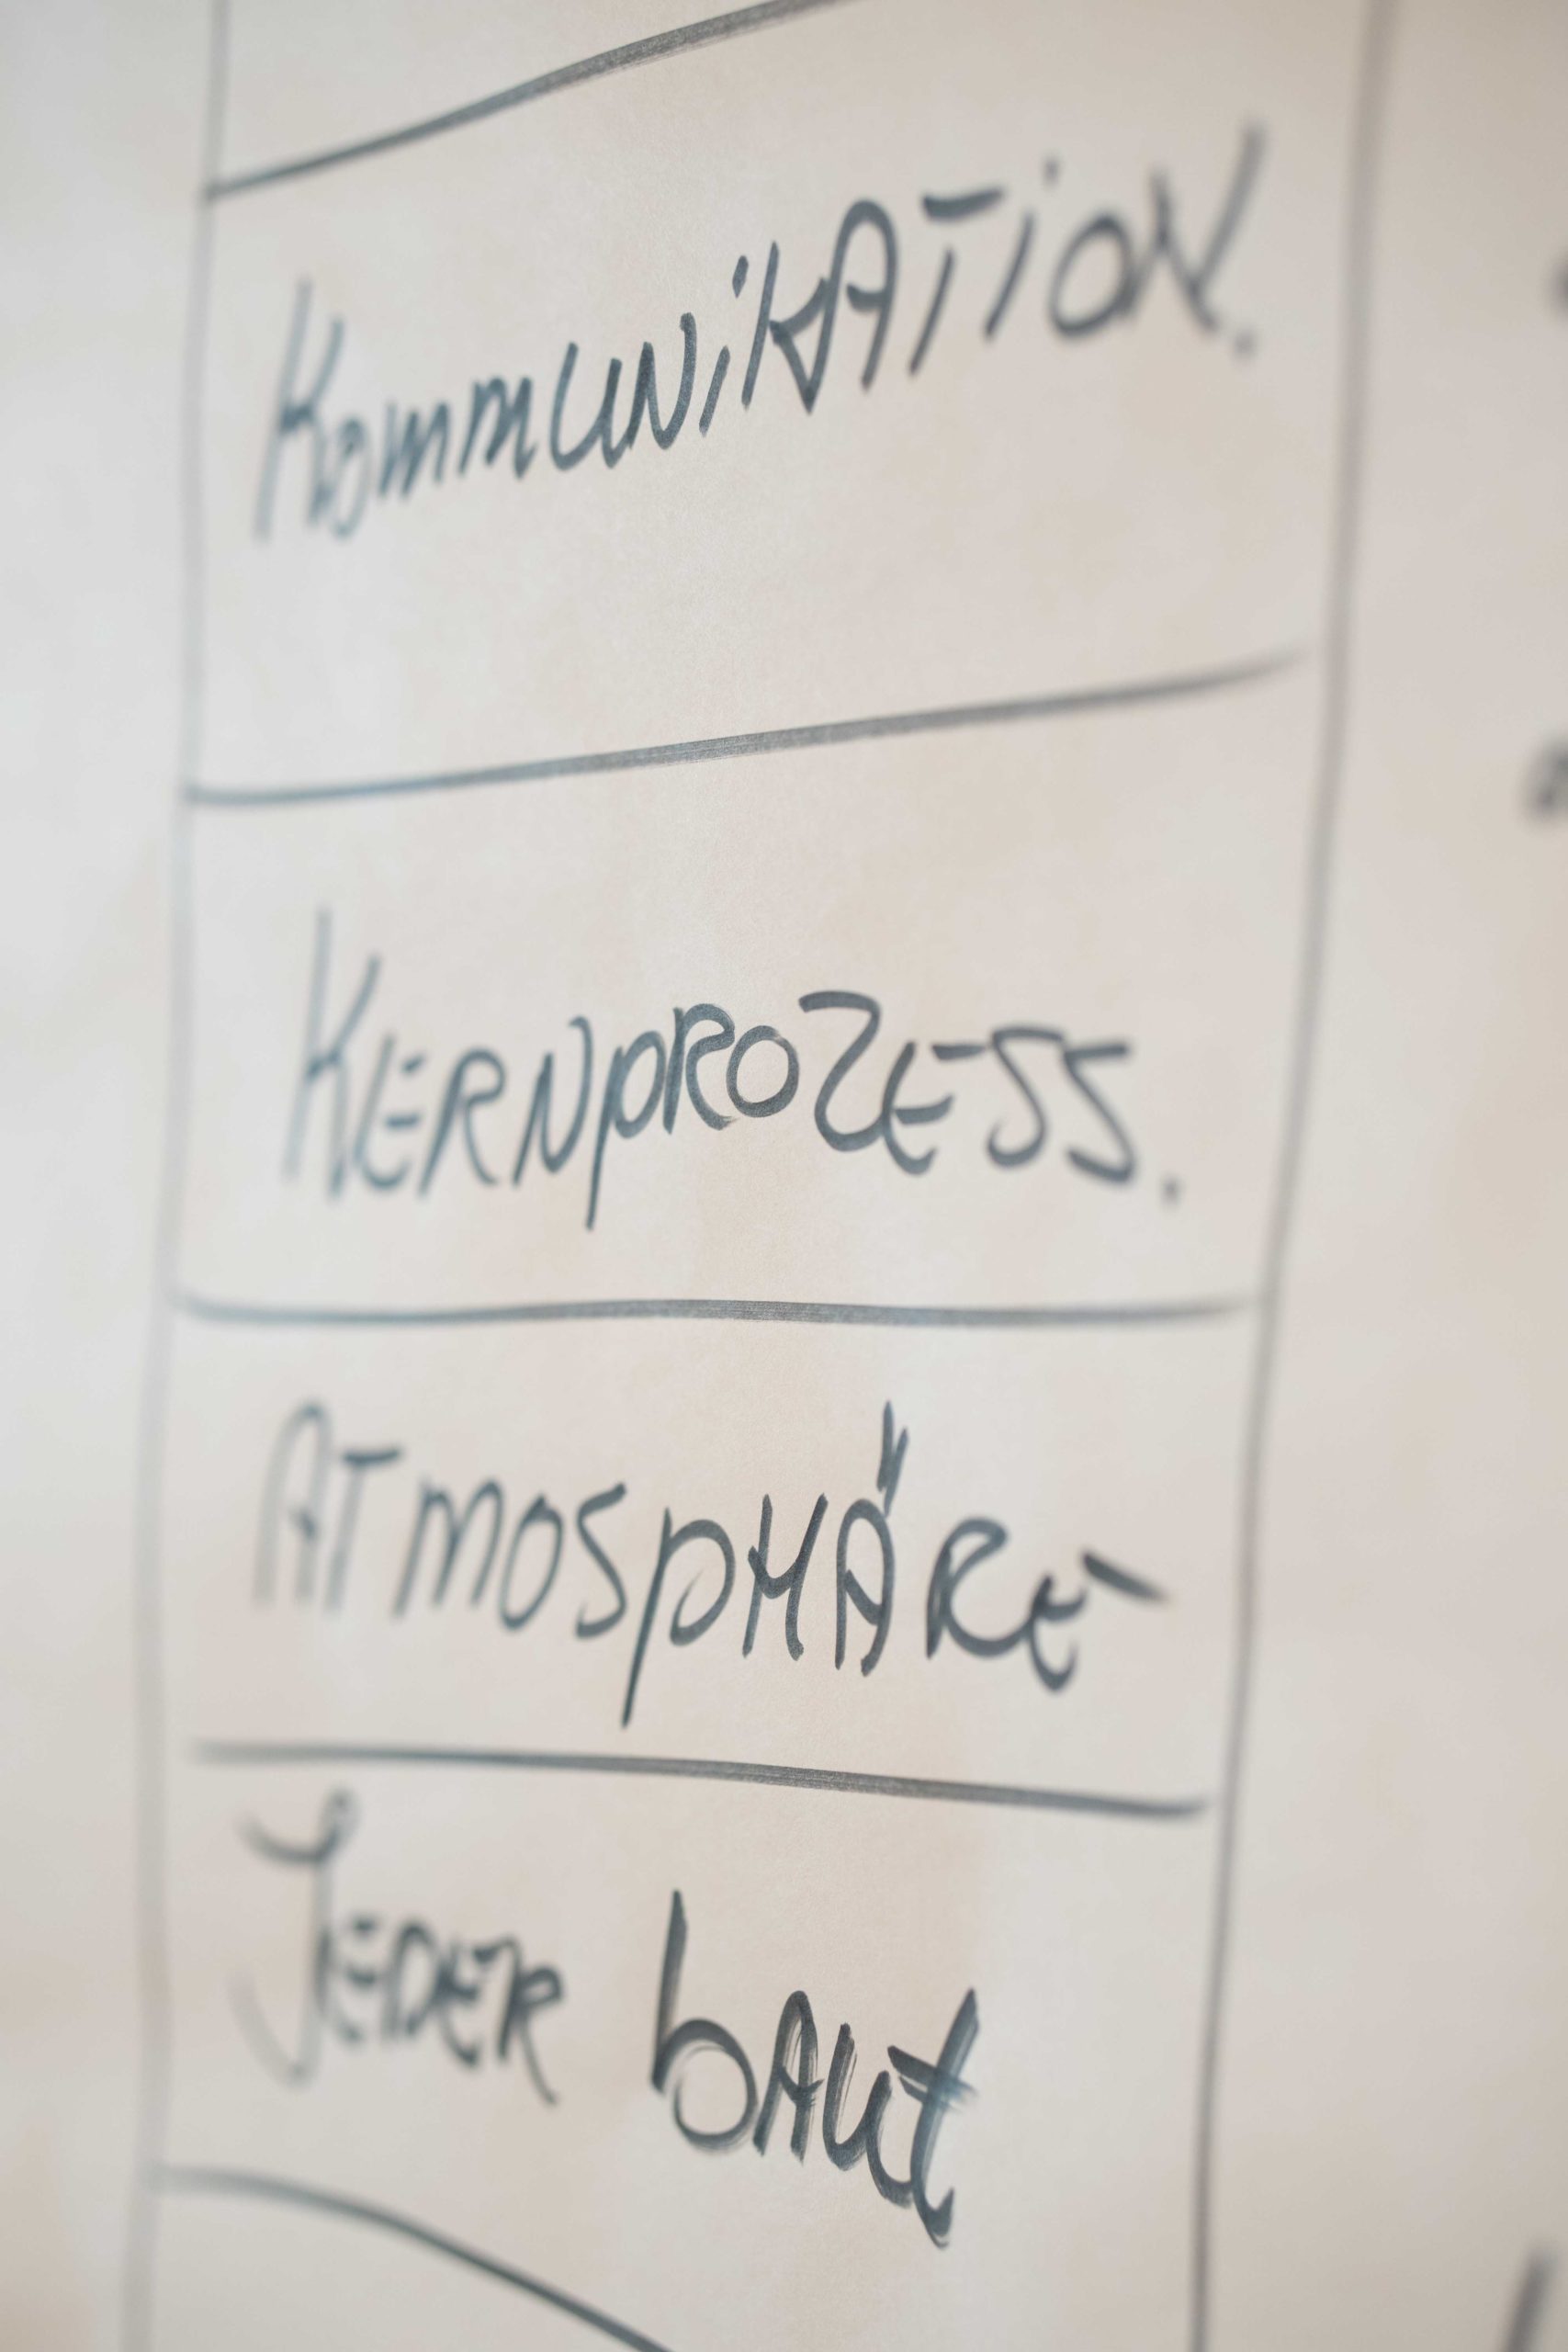 KommuNiKATiON.
KERNPROZESS.
ATMOSPHÄRE
JEDER bAut